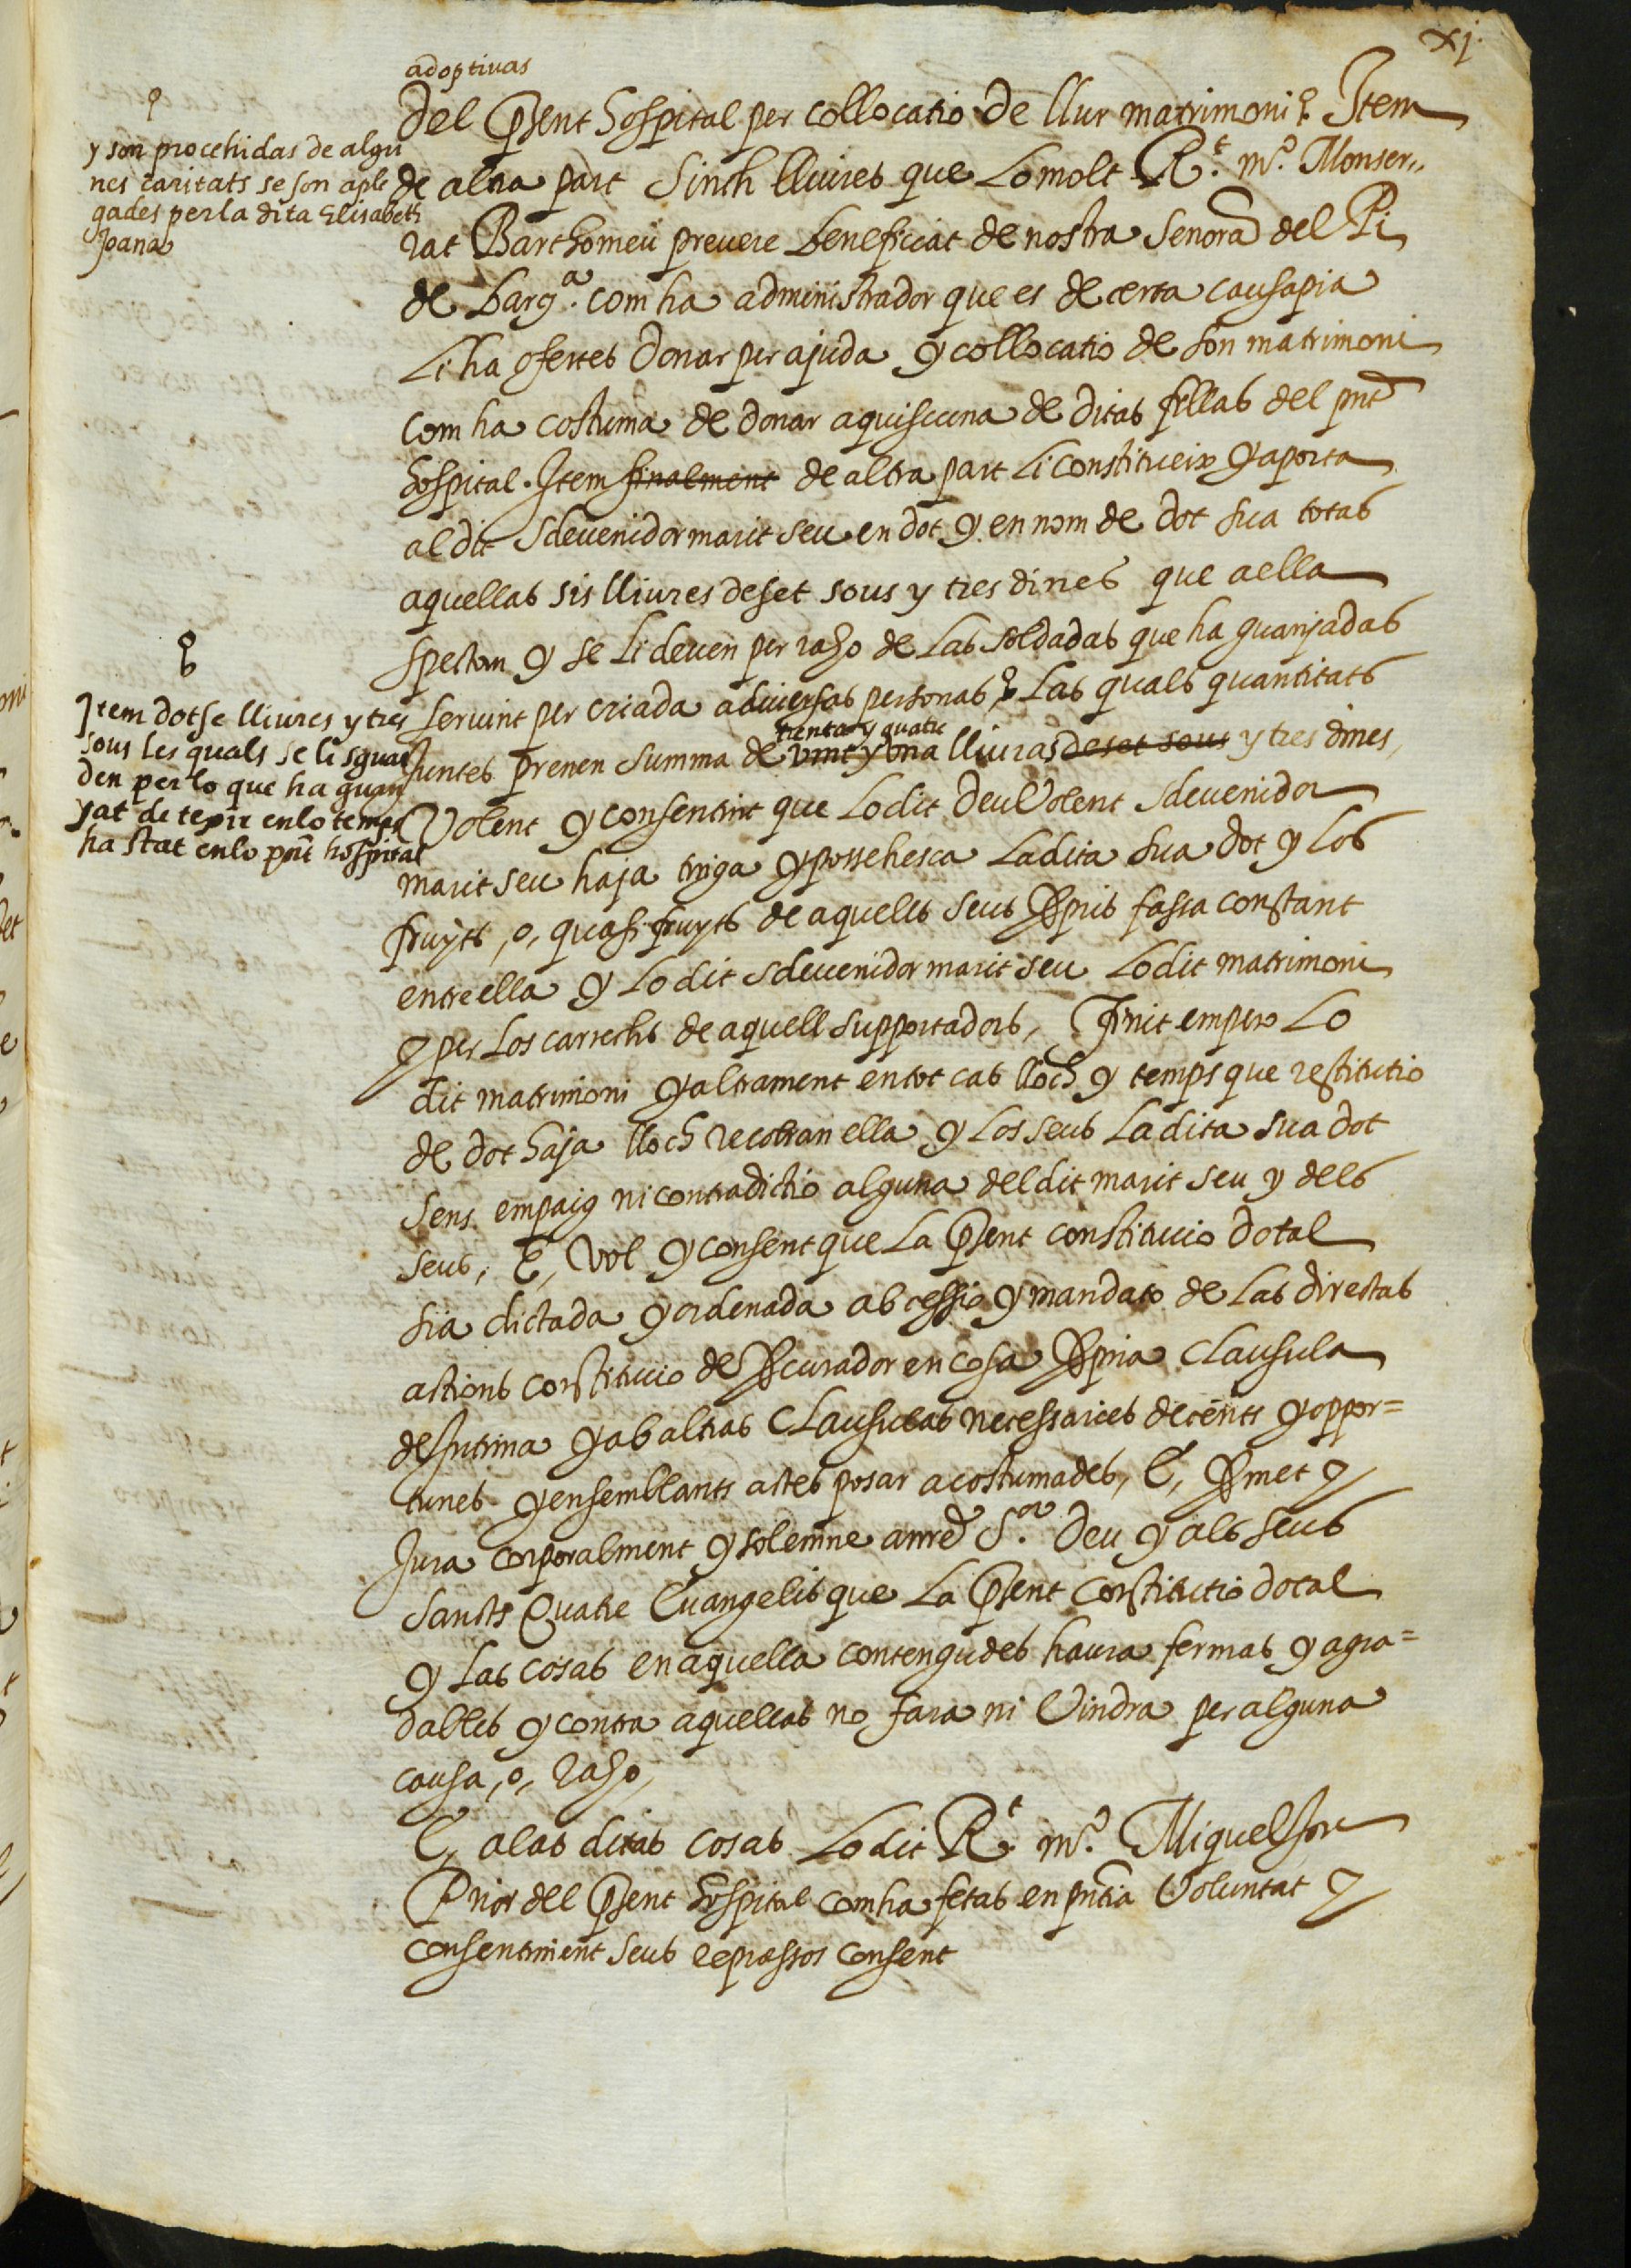 xj.
adoptivas
del p̄sent hospital per collocatio de llur matrimoni Item
y son procehidas de algu
nes caritats se son aple
gades per la dita Elisabeth
Joana
de altra part sinch lliures que lo molt R.t m.o Monser„
rat Barthomeu prevere beneficiat de nostra senora del Pi
de barg.a com ha administrador que es de certa causa pia
li ha ofertes donar per ajuda y collocatio de son matrimoni
com ha costuma de donar a quiscuna de ditas fillas del pn̄t
hospital. Item finalment de altra part li constitueix y aporta
al dit sdevenidor marit seu en dot y en nom de dot sua totas
aquellas sis lliures deset sous y tres dines que a ella
spectan y se li deven per raho de las soldadas que ha guanjadas
servint per criada a diversas personas, las quals quantitats
Item dotse lliures y tres
sous les quals se li sguar
den per lo que ha guan
yat de texir en lo temps
ha stat en lo pn̄t hospital
trenta y quatre
juntes prenen summa de vint y una lliuras deset sous y tres dines,
Volent y consentint que lo dit Deu Volent sdevenidor
marit seu haja tinga y possehesca la dita sua dot y los
fruyts, o, quasi fruyts de aquells seus p̄pris fassa constant
entre ella y lo dit sdevenidor marit seu lo dit matrimoni
y per los carrechs de aquell supportadors, Finit empero lo
dit matrimoni y altrament en tot cas lloch y temps que restitutio
de dot haja lloch recobran ella y los seus la dita sua dot
sens empaig ni contradictio alguna del dit marit seu y dels
seus, E, vol y consent que la p̄sent constitucio dotal
sia dictada y ordenada ab cessio y mandato de las directas
actions constitucio de p̄curador en cosa p̄pria clausula
de sutrina y ab altras clausulas necessaries decents y oppor=
tunes y en semblants actes posar acostumades, E, p̄met y
jura corporalment y solemne a nr̄e S.or Deu y als seus
sancts Quatre Evangelis que la p̄sent constitutio dotal
y las cosas en aquella contengudes haura fermas y agra=
dables y contra aquellas no fara ni vindra per alguna
causa, o, raho,
E, a las ditas cosas lo dit R.t m.o Miquel
Prior del p̄sent hospital com ha fetas en pn̄tia voluntat y
consentiment seus expressos consent